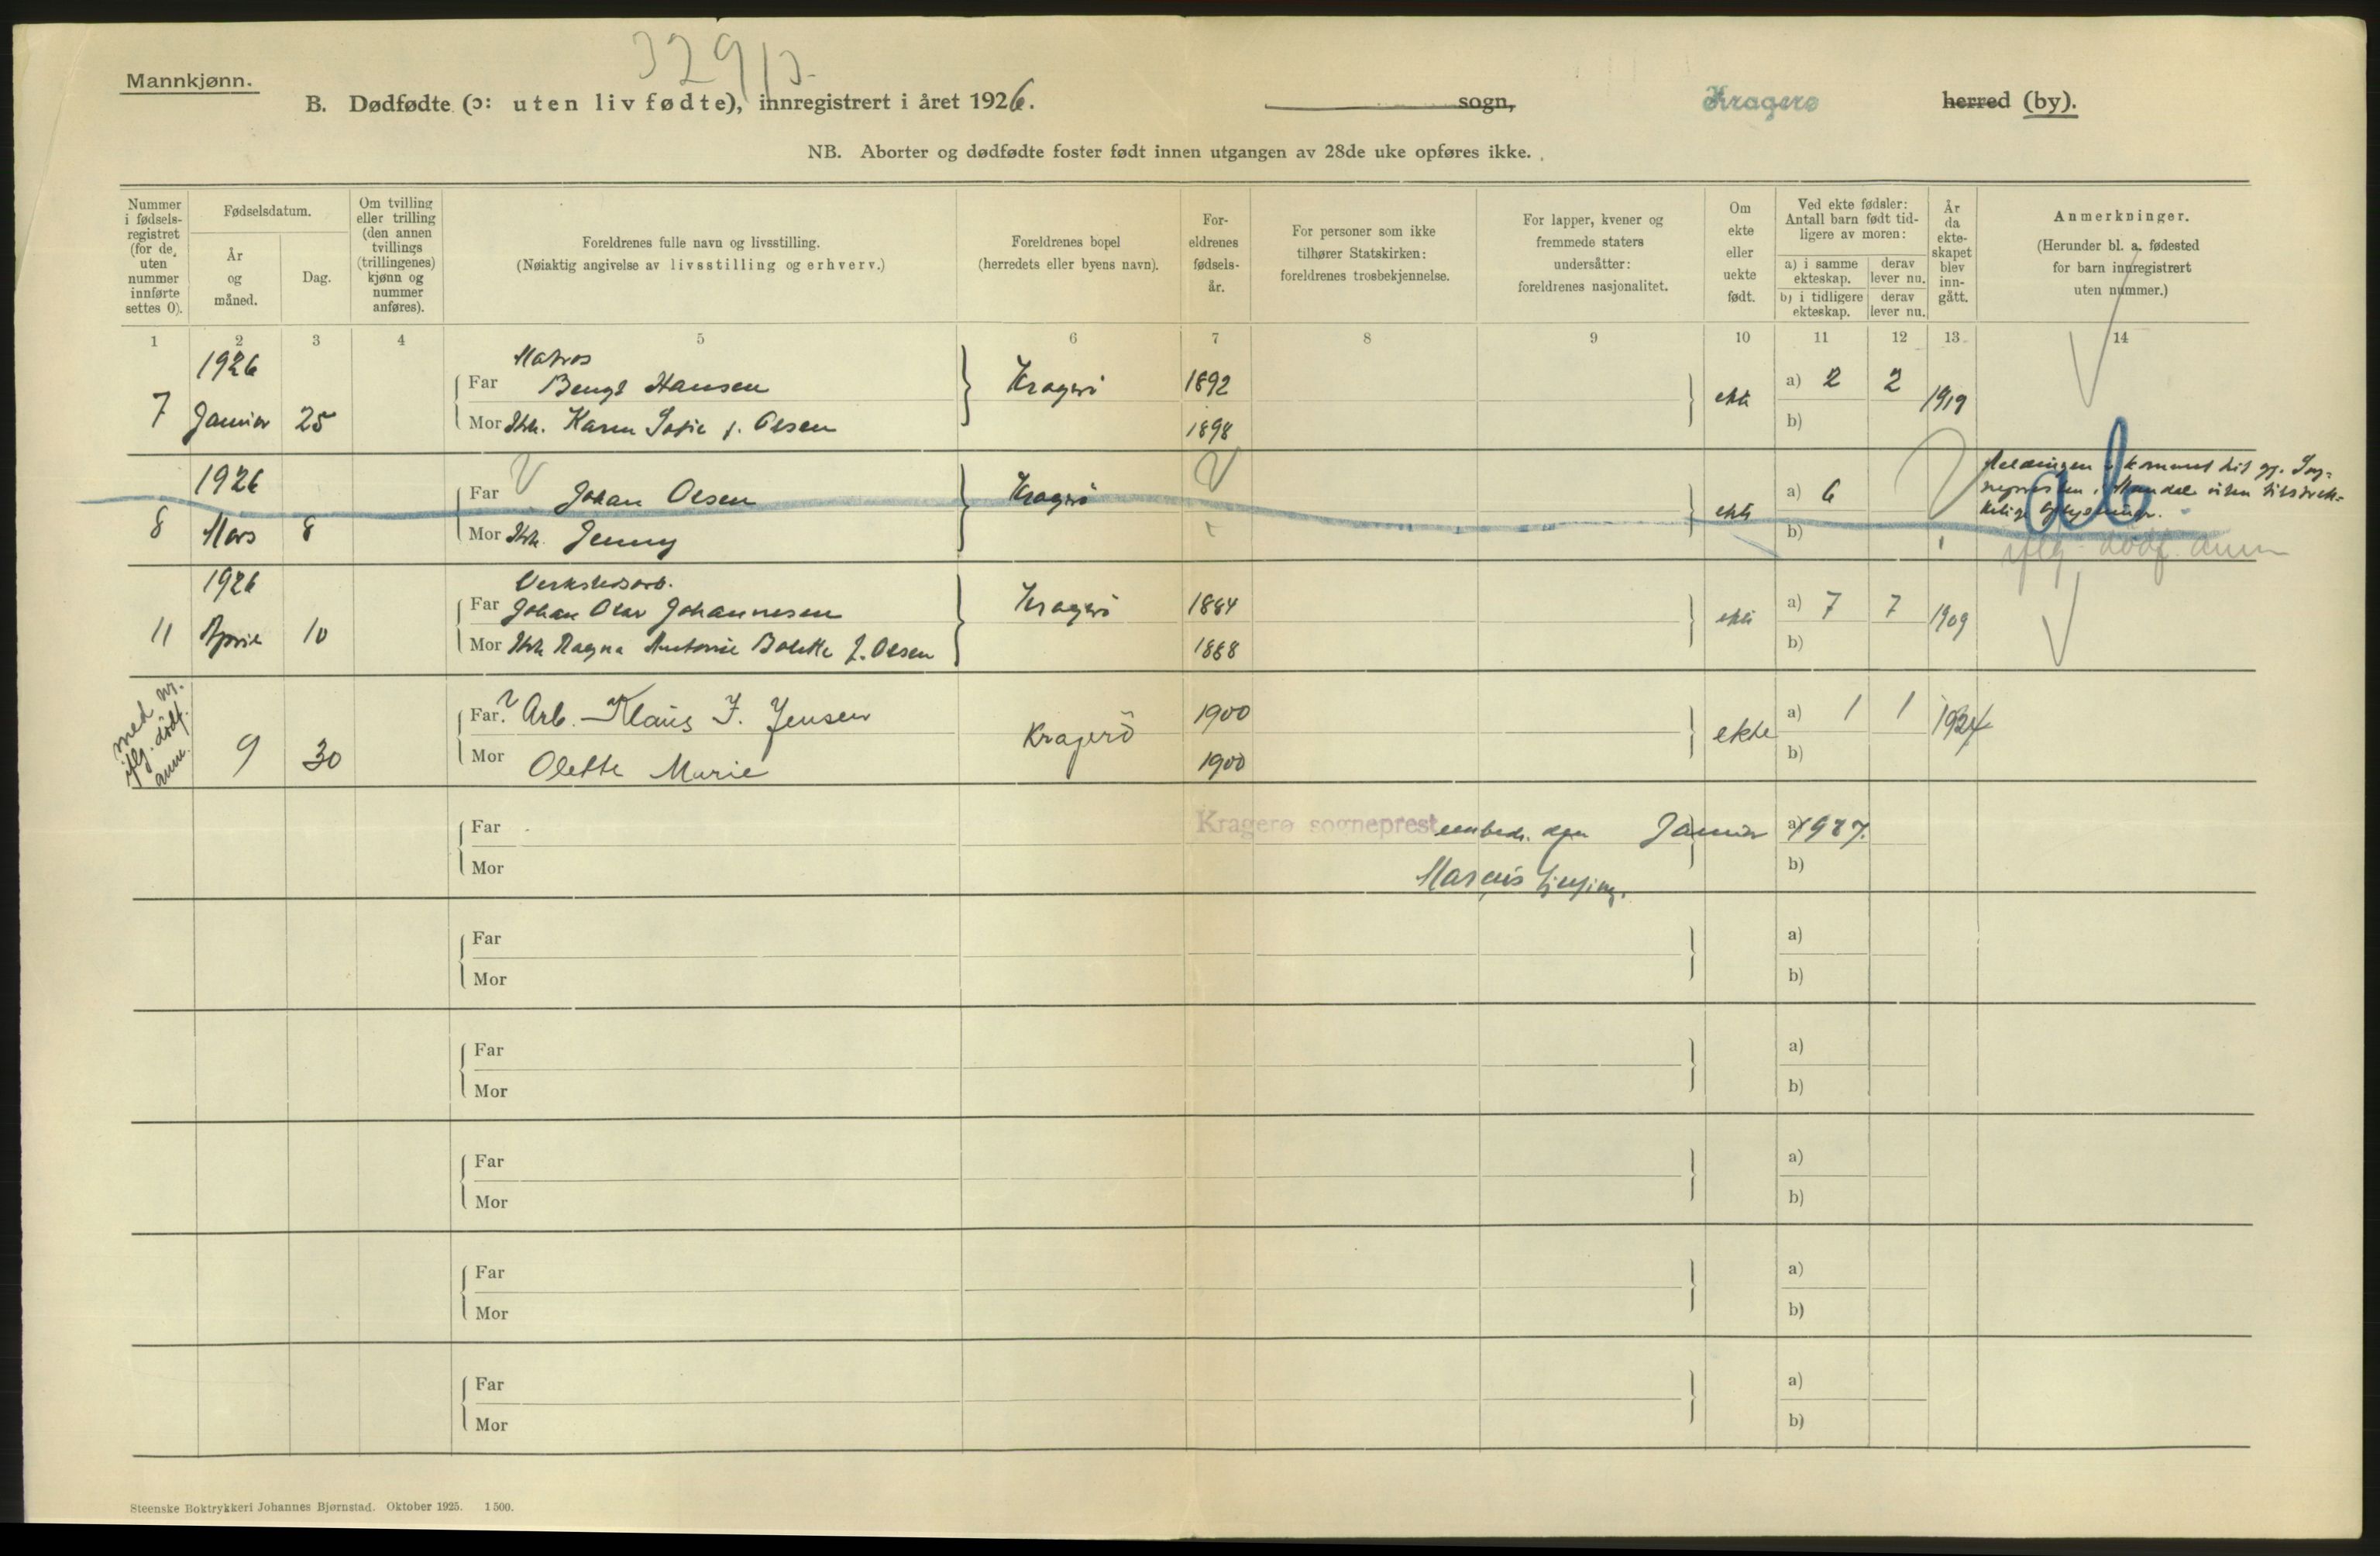 32913.
Mannkjønn.
B. Dødfødte (ɔ: uten liv fødte), innregistrert i året 1926. sogn, Kragerø herred (by).
NB. Aborter og dødfødte foster født innen utgangen av 28de uke opføres ikke.
Nummer i fødselsregistret (for de, uten nummer innførte settes 0).
Fødselsdatum.
År og måned.
Dag.
Om tvilling eller trilling (den annen tvillings (trillingenes) kjønn og nummer anføres).
Foreldrenes fulle navn og livsstilling.
(Nøiaktig angivelse av livsstilling og erhverv.)
Foreldrenes bopel
(herredets eller byens navn).
For-
eldrenes
fødsels-
år.
For personer som ikke
tilhører Statskirken:
foreldrenes trosbekjennelse.
For lapper, kvener og
fremmede staters
undersåtter:
foreldrenes nasjonalitet.
Om
ekte
eller
uekte
født.
Ved ekte fødsler:
Antall barn født tid-
ligere av moren:
a) i samme ekteskap.
derav lever nu.
b) i tidligere ekteskap.
derav lever nu.
År
da
ekte-
skapet
blev
inn-
gått.
Anmerkninger.
(Herunder bl. a. fødested
for barn innregistrert
uten nummer.)
1 2 3 4 5 6 7 8 9 10 11 12 13 14
1926 Matros
Far Bengt Hansen Kragerö 1892 a) 2 2
7 Januar 25 ekte 1919
Mor Htr. Karen Sofie f. Olsen 1898 b)
1926
Far Johan Olsen Kragerö a) 6
8 Mars 8 ekte
Mor Htr. Jenny b)
Meldingen kommet hit gj. Sog-
nepresten i Mandal uten tilstrek-
kelige oplysninger.
ab
iflg. dödf. anm
1926 Verkstedsarb.
Far Johan Olav Johannesen Kragerö 1884 a) 7 7
11 April 10 ekte 1909
Mor Htr Ragna Antonie Bolette f. Olsen 1888 b)
med nr.
iflg. dödf.
anm.
Far ? Arb. Klaus F. Jensen 1900 a) 1 1
9 30 Kragerö ekte 1924
Mor Olette Marie 1900 b)
Far Kragerø sogneprestembede. den Januar 1927. a)
Mor b)
Far a)
Mor b)
Far a)
Mor b)
Far a)
Mor b)
Far a)
Mor b)
Far a)
Mor b)
Steenske Boktrykkeri Johannes Bjørnstad. Oktober 1925. 1500.